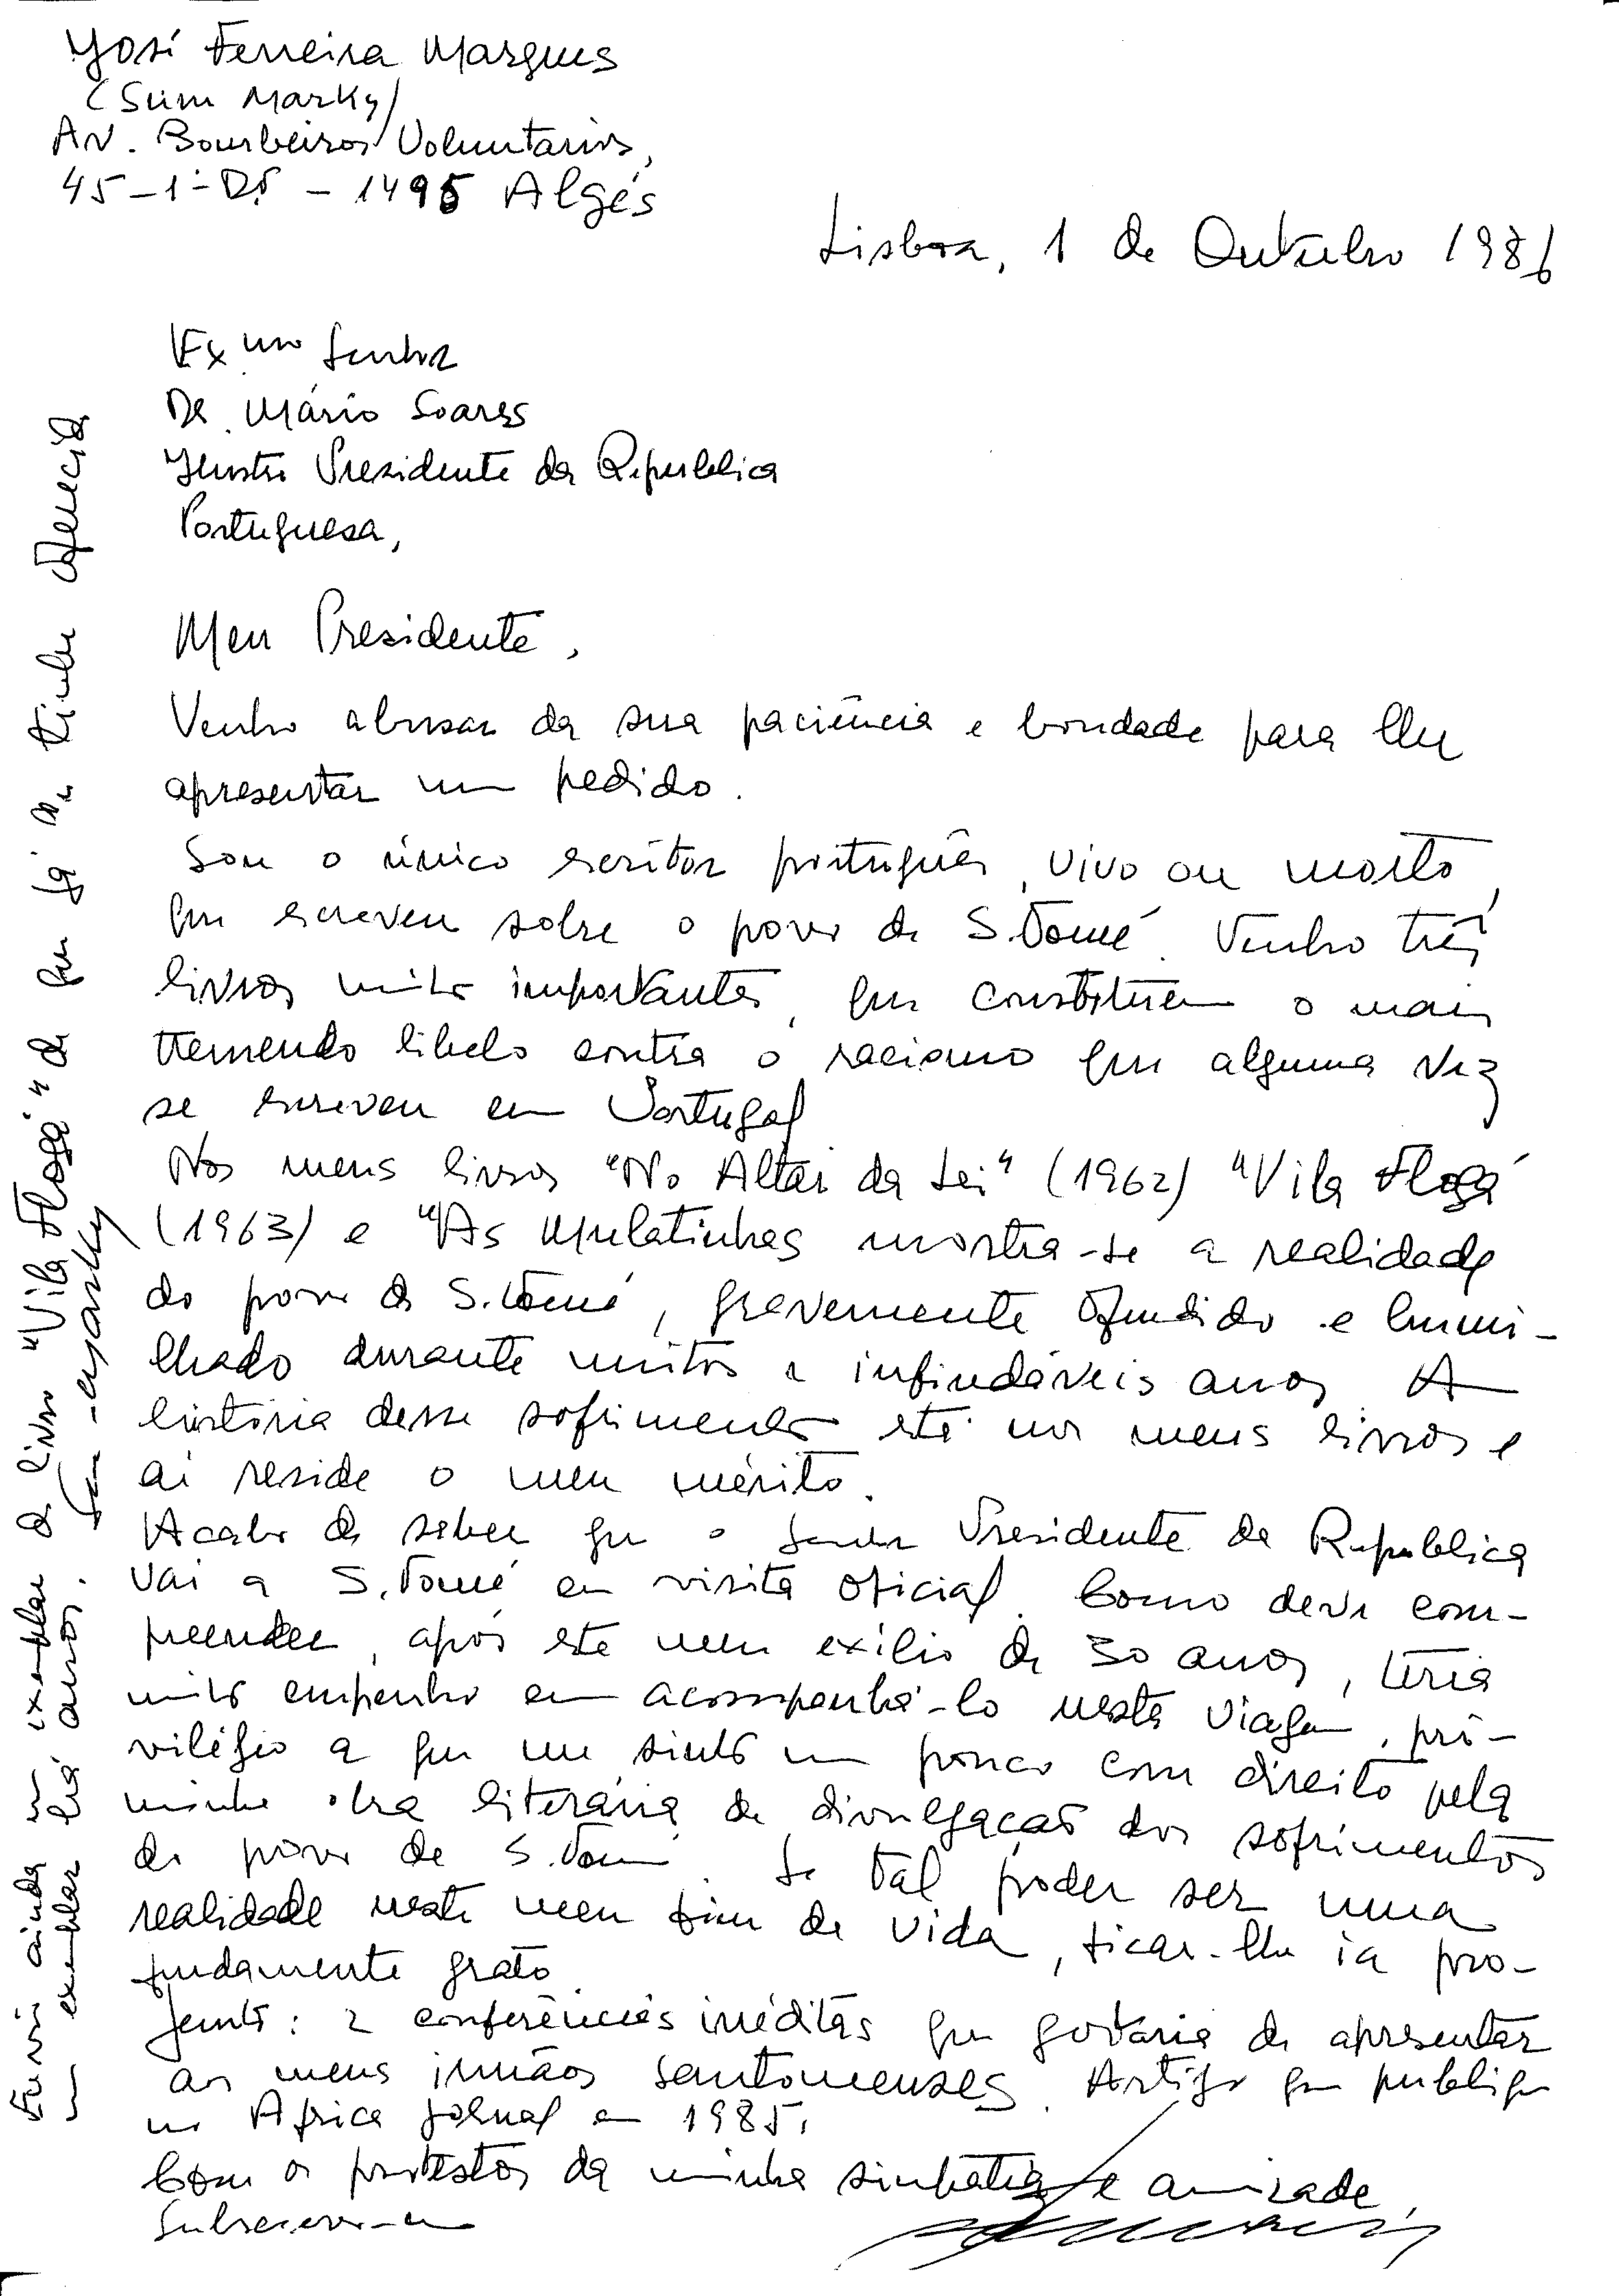 José Ferreira Marques
(Sum Marky)
Av. Bombeiros Voluntarios,
45-1º Dt. - 1495 Algés
Lisboa, 1 de Outubro 1986
Ex.mo Senhor
Dr. Mário Soares
Ilustre Presidente da Republica
Portuguesa,
Meu Presidente,
Venho abusar da sua paciência e bondade para lhe
apresentar um pedido.
Sou o único escritor português, vivo ou morto,
que escreveu sobre o povo de S. Tomé. Tenho três
livros muito importantes, que constituem o mais
tremendo libelo contra o racismo que alguma vez
se escreveu em Portugal
Nos meus livros "No Altar da Lei" (1962) "Vila Flogá"
(1963) e "As Mulatinhas mostra-se a realidade
do povo de S. Tomé, gravemente ofendido e humi-
lhado durante muitos e infindáveis anos. A
história desse sofrimento está nos meus livros e
aí reside o meu mérito.
Acabo de saber que o Senhor Presidente da Republica
vai a S. Tomé em visita oficial. Como deve com-
preender, após este meu exílio de 30 anos, teria
muito empenho em acompanhá-lo nesta viagem, pri-
vilégio a que me sinto um pouco com direito pela
minha obra literária de divulgação dos sofrimentos
do povo de S. Tomé. Se tal poder ser uma
realidade neste meu fim de vida, ficar-lhe ia pro-
fundamente grato.
Junto: 2 conferências inéditas que gostaria de apresentar
aos meus irmãos santomenses. Artigo que publiquei
no Africa Jornal em 1985.
Com os protestos da minha simpatia e amizade,
Subscrevo-me
Envio ainda um exemplar do livro "Vila Flogá" de que já lhe tinha oferecido
um exemplar há anos. Sum Marky